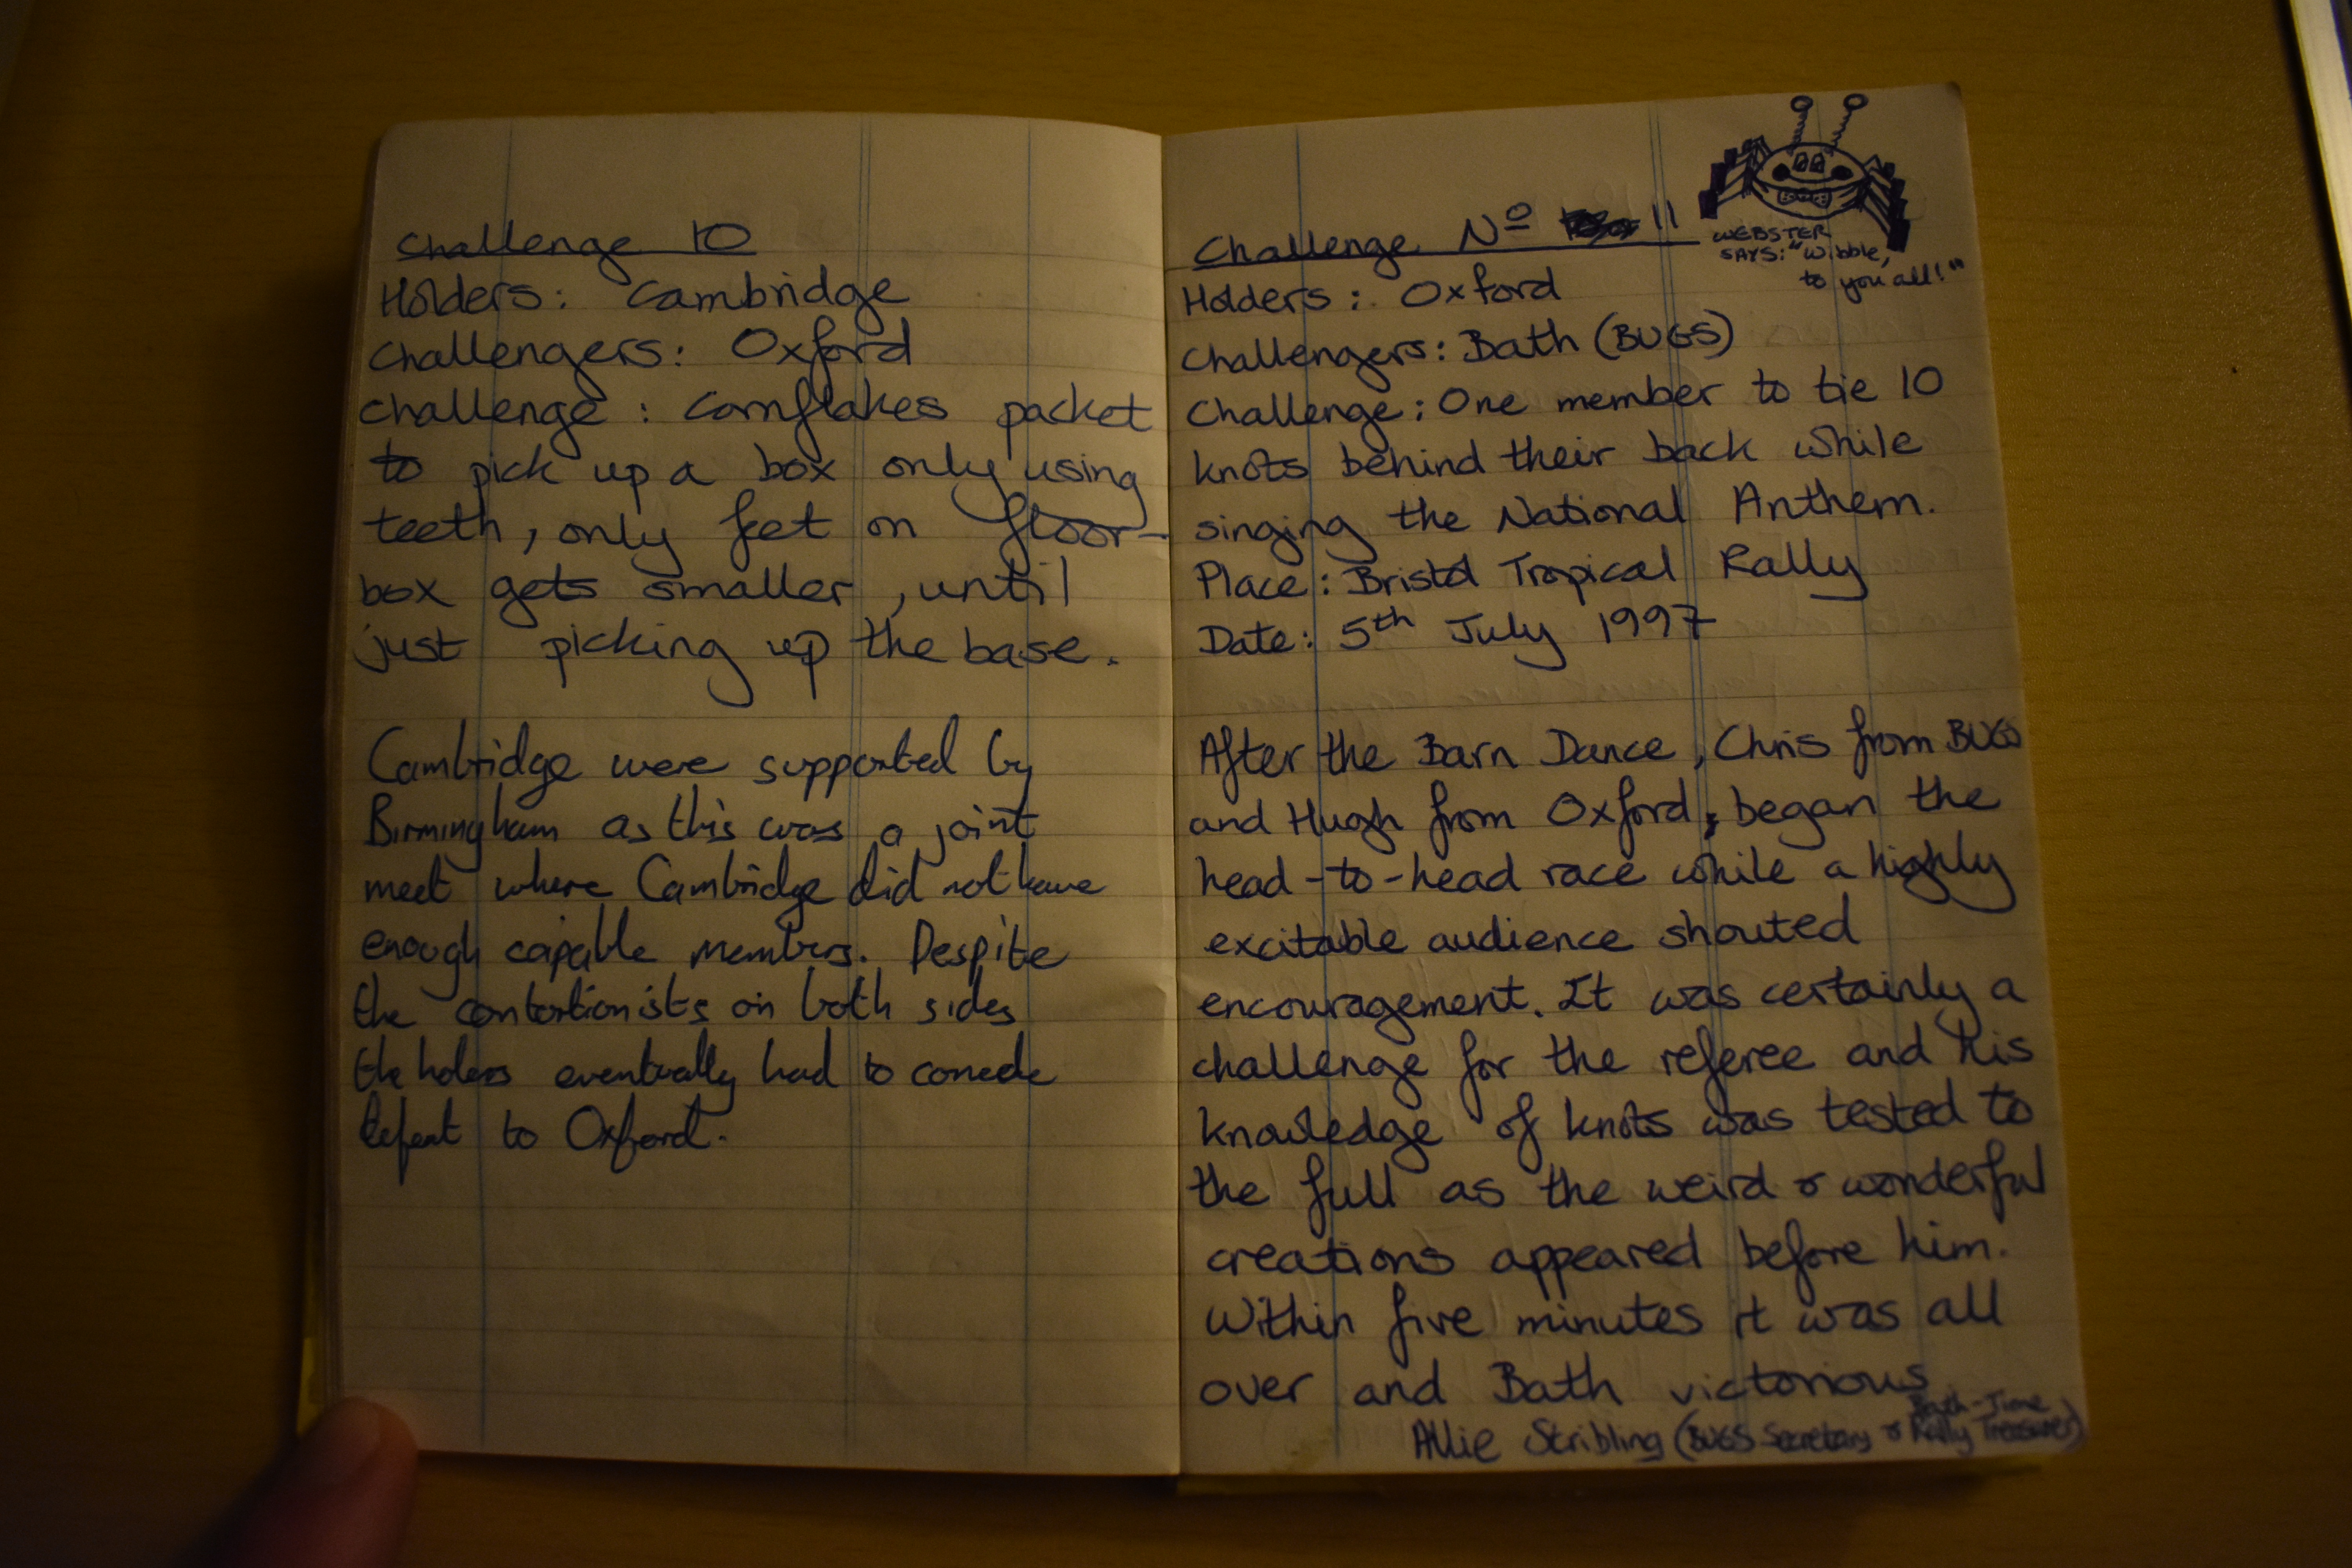 Challenge 10
Holders: Cambridge
Challengers: Oxford
Challenge: Cornflakes packet
to pick up a box only using
teeth, only feet on floor-
box gets smaller, until
just picking up the base.
Cambridge were supported by
Birmingham as this was a joint
meet where Cambridge did not have
enough capable members. Despite
the contortionists on both sides
the holers eventually had to concede
defeat to Oxford.
Challenge Nº 11
WEBSTER
SAYS: "Wibble,
to you all!"
Holders: Oxford
Challengers: Bath (BUGS)
Challenge: One member to tie 10
knots behind their back while
singing the National Anthem.
Place: Bristol Tropical Rally
Date: 5th July 1997
After the Barn Dance, Chris from BUGS
and Hugh from Oxford, began the
head-to-head race while a highly
excitable audience shouted
encouragement. It was certainly a
challenge for the referee and his
knowledge of knots was tested to
the full as the weird & wonderful
creations appeared before him.
Within five minutes it was all
over and Bath victorious
Allie Stribling (BUGS Secretary & Bath-Time
Rally Treasurer)